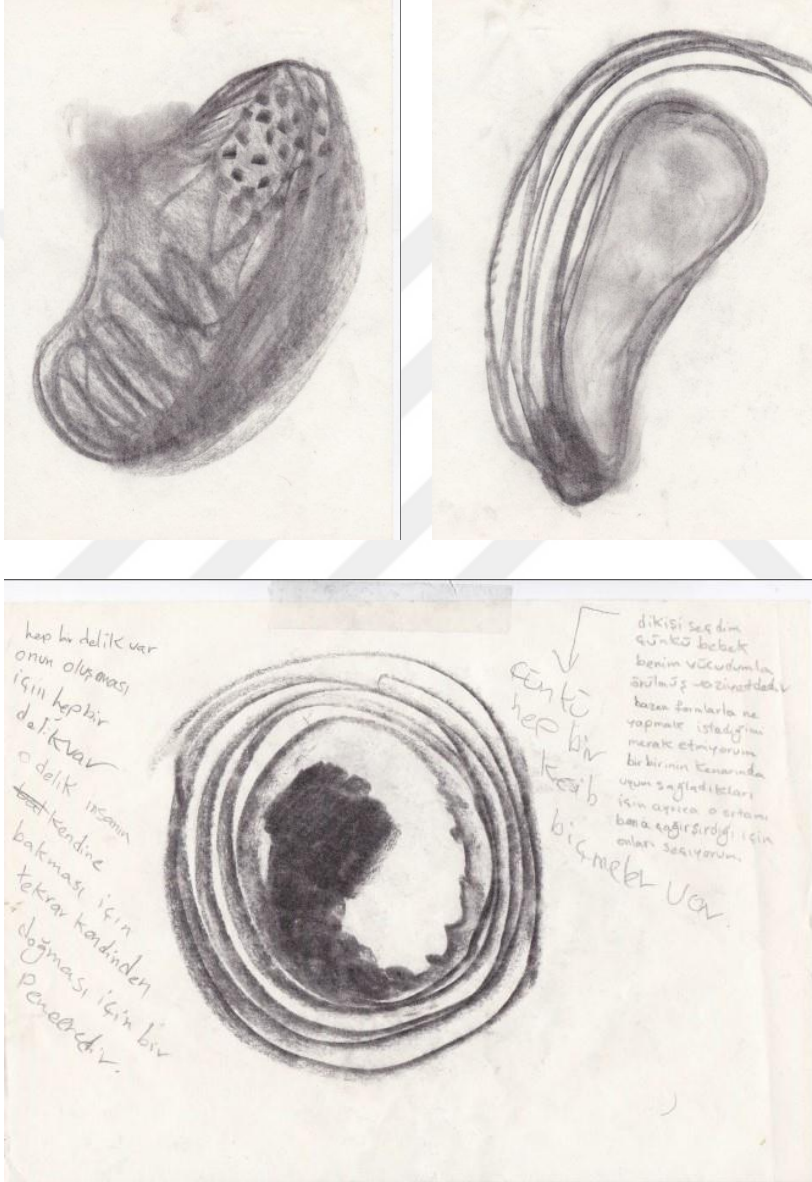 hep bir delik var
onun oluşması
için hep bir
delik var
o delik insanın
kendine
bakması için
tekrar kendinden
doğması için bir
penceredir.
çünkü
hep bir
kesib
biçmeler var.
dikişi seçdim
çünkü bebek
benim vücudumla
örülmüş
bazen formlarla ne
yapmak istediğimi
merak etmiyorum
birbirinin kenarında
uyum sağladıkları
için ayrıca o ortamı
bana çağırşırdığı için
onları seçiyorum